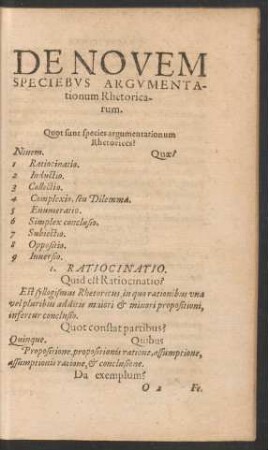 DE NOVEM
SPECIEBVS ARGVMENTA-
tionum Rhetorica-
rum.
Quot sunt species argumentationum
Rhetorices?
Nouem. Quæ?
1 Ratiocinatio.
2 Inductio.
3 Collectio.
4 Complexio. seu Dilemma.
5 Enumeratio.
6 Simplex conclusio.
7 Subiectio.
8 Oppositio.
9 Inuersio.
1. RATIOCINATIO.
Quid est Ratiocinatio?
Est syllogismus Rhetoricus, in quo rationibus vna
vel pluribus additis maiori & minori propositioni,
infertur conclusio.
Quot constat partibus?
Quinque. Quibus
Propositione, propositionis ratione, assumptione,
assumptionis ratione, & conclusione.
Da exemplum?
O 2 Fe.